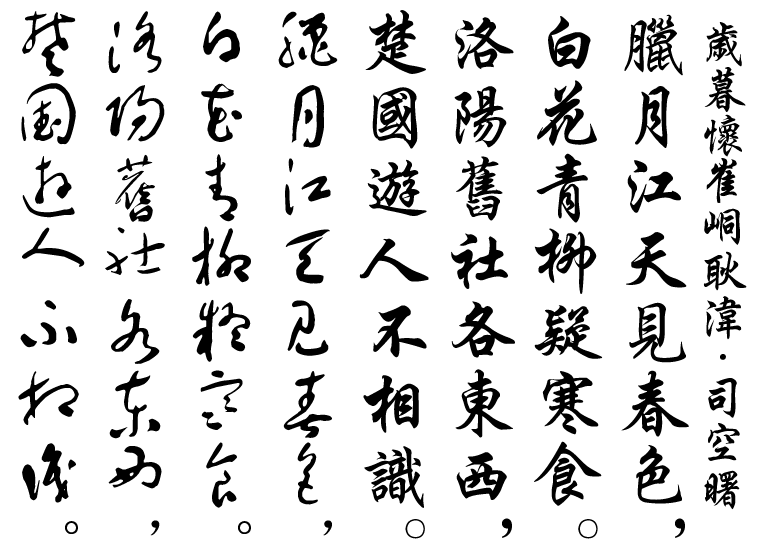 歲暮懷崔峒耿湋·司空曙
臘月江天見春色，
白花青柳疑寒食。
洛陽舊社各東西，
楚國遊人不相識。
臘月江天見春色，
白花青柳疑寒食。
洛陽舊社各東西，
楚國遊人不相識。